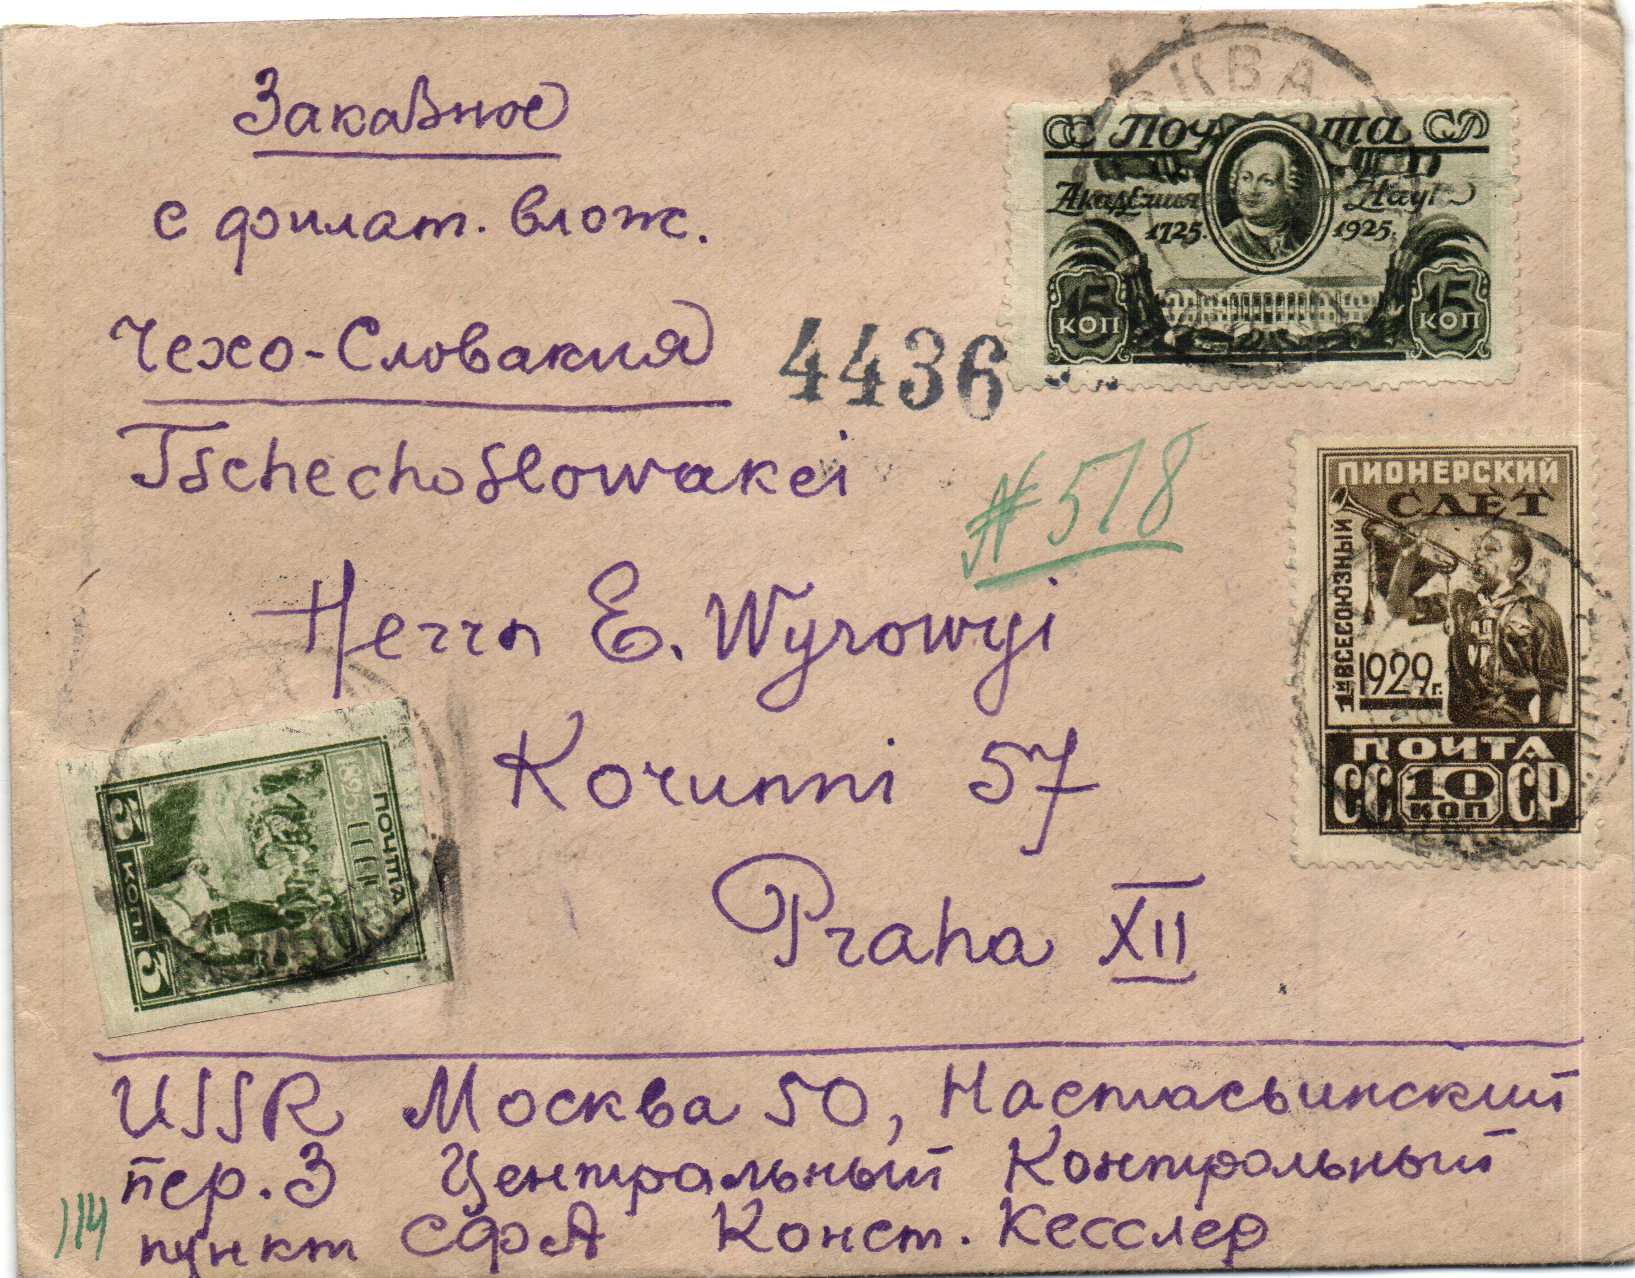 Заказное
с филат. влож.
Чехо-Словакия
Tschechoslowakei
4436
№ 518
Herrn E. Wyrowyi
Korunni 57
Praha XII
USSR Москва 50, Настасьинский
пер. 3 Центральный Контрольный
пункт СФА Конст. Кесслер
114
СС Почта СР
Академия Наук
1725. 1925.
15 КОП 15 КОП
ПИОНЕРСКИЙ
СЛЁТ
1Й ВСЕСОЮЗНЫЙ
1929 г.
ПОЧТА
СС 10 КОП СР
ПОЧТА
1825
5 КОП 5